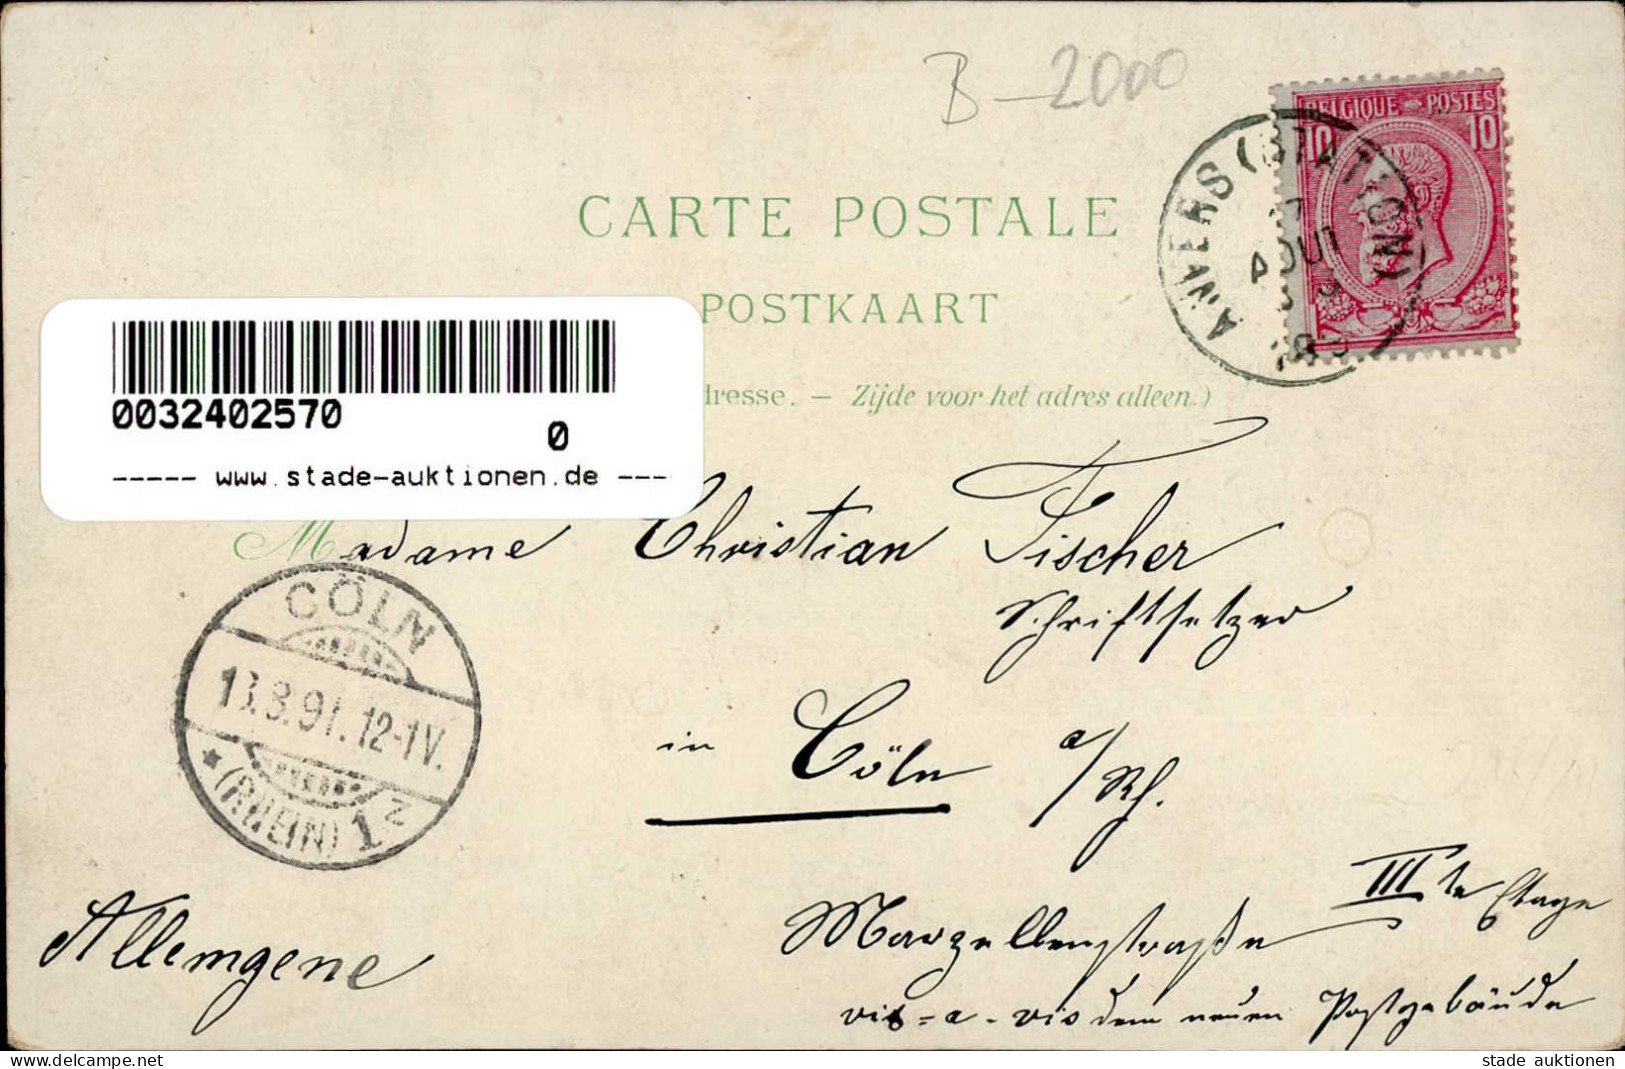 B-2000
BELGIQUE POSTES
10 10
ANVERS (STATION)
AOUT
CARTE POSTALE
POSTKAART
dresse. — Zijde voor het adres alleen.)
0032402570
0
----- www.stade-auktionen.de ---
Madame Christian Fischer
Schriftsetzer
CÖLN
13.8.91. 12-1V.
* (RHEIN) 1 z
in Cöln a/Rh.
IIIte Etage
Marzellenstraße
vis=a-vis dem neuen Postgebäude
Allemgene
stade auktionen